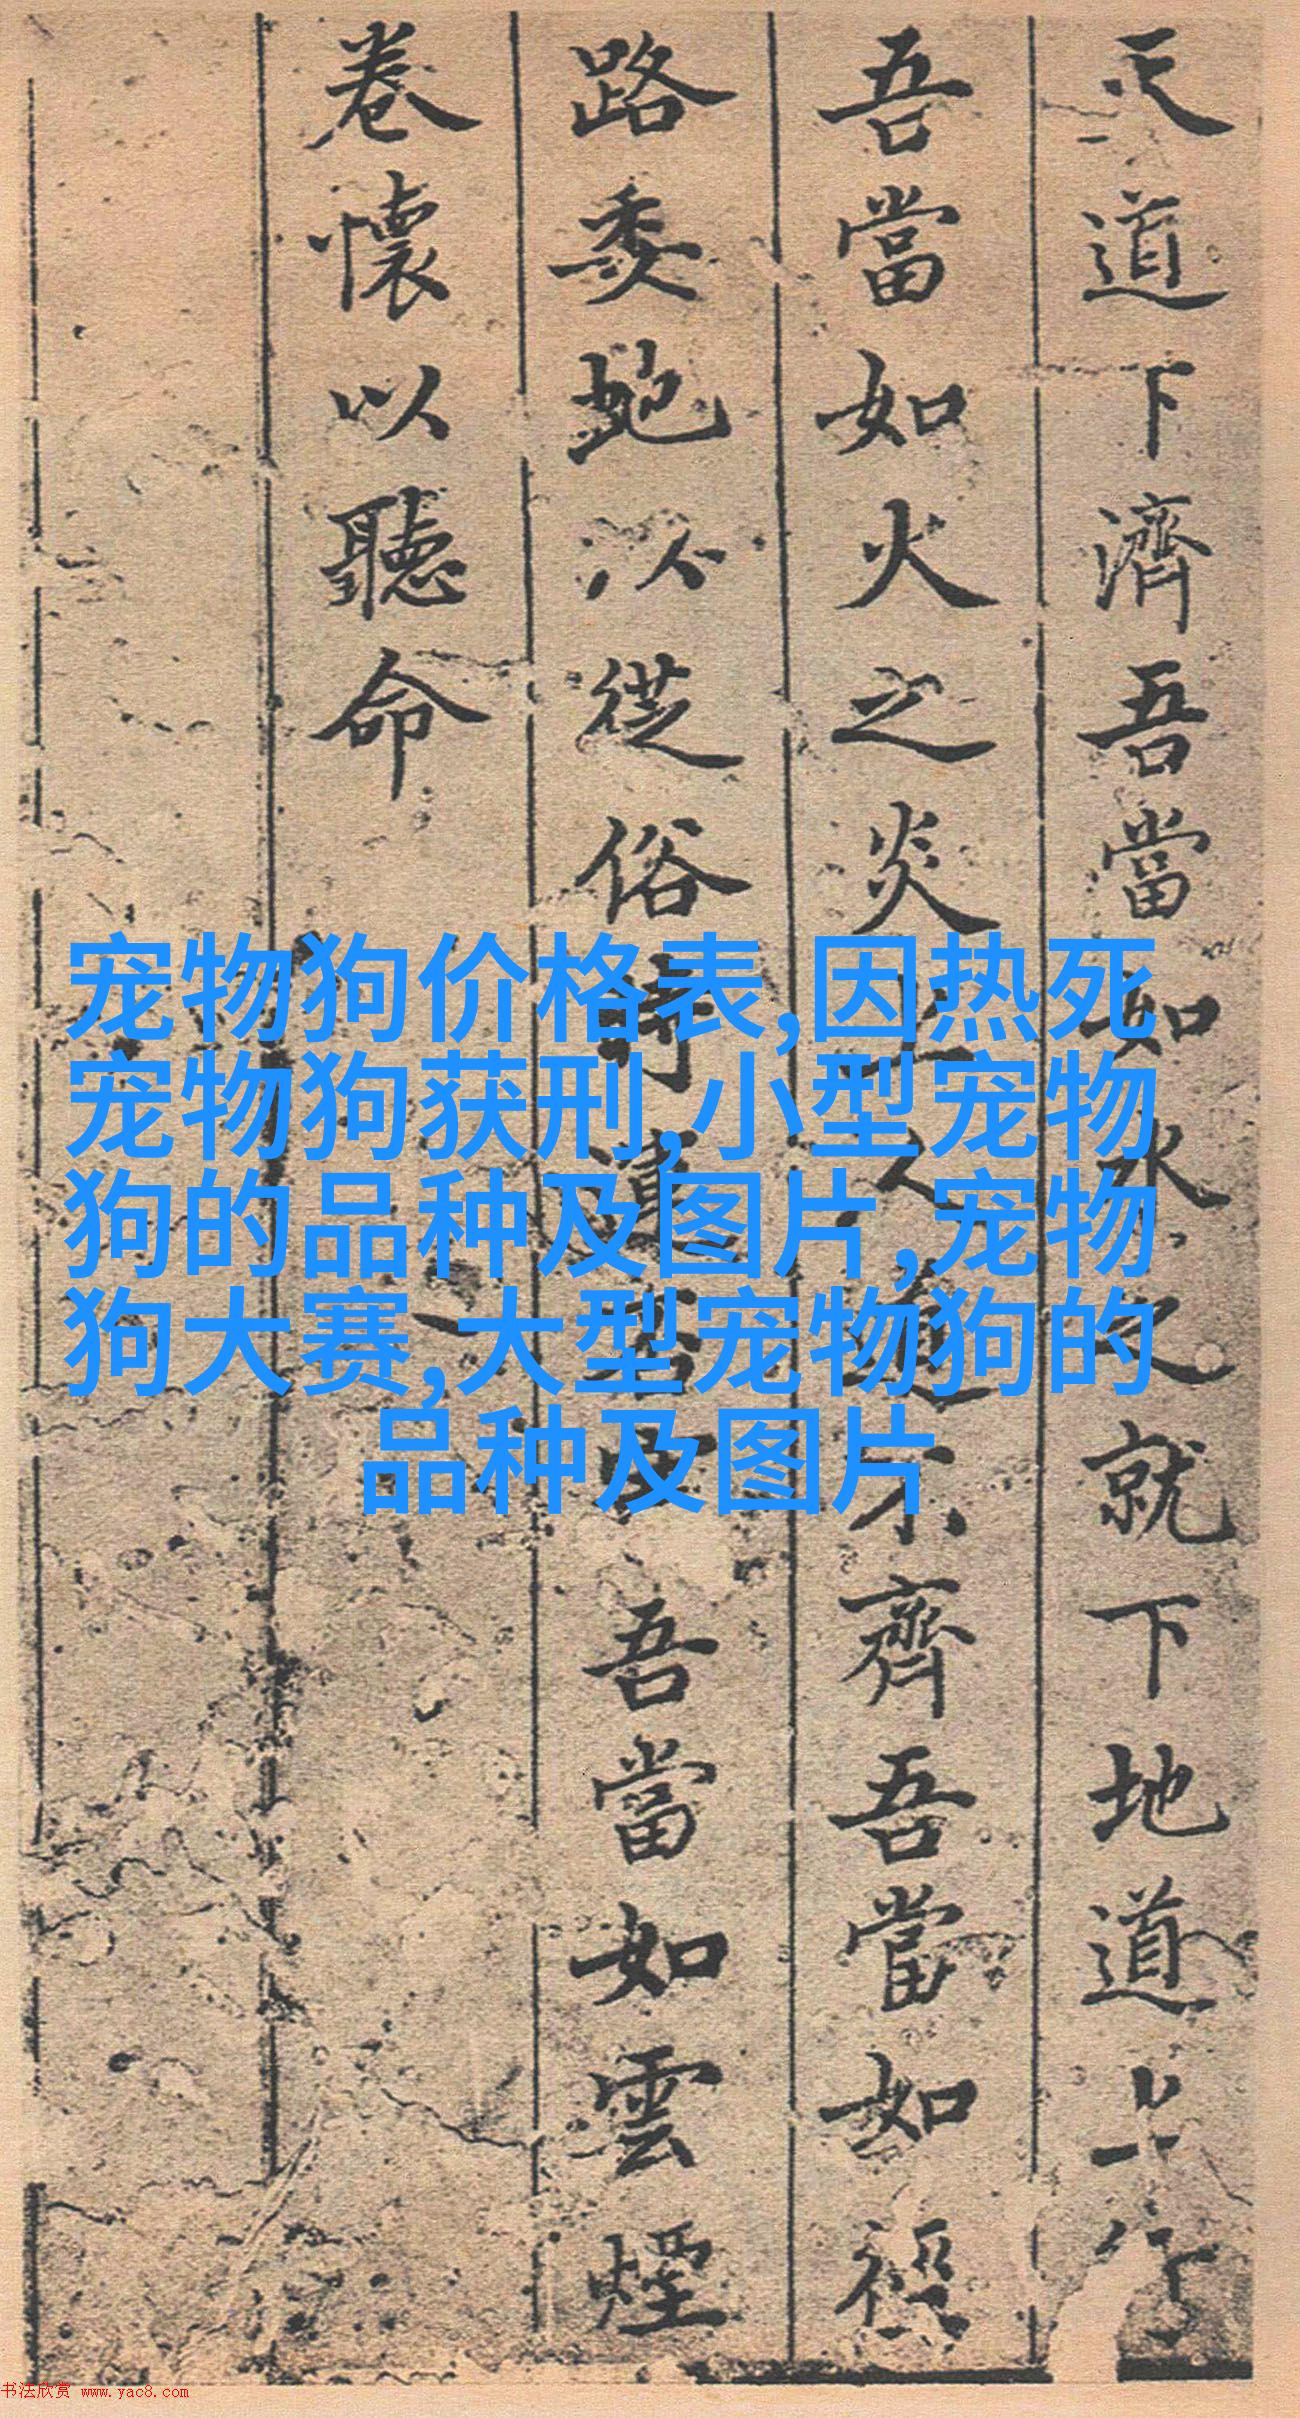 天道下濟吾當如水之就下地道上行
吾當如火之炎上人道不齊吾當如徑
路委虵以從俗時吾當如雲煙
卷懷以聽命
宠物狗价格表,因热死
宠物狗获刑,小型宠物
狗的品种及图片,宠物
狗大赛,大型宠物狗的
品种及图片
书法欣赏 www.yac8.com